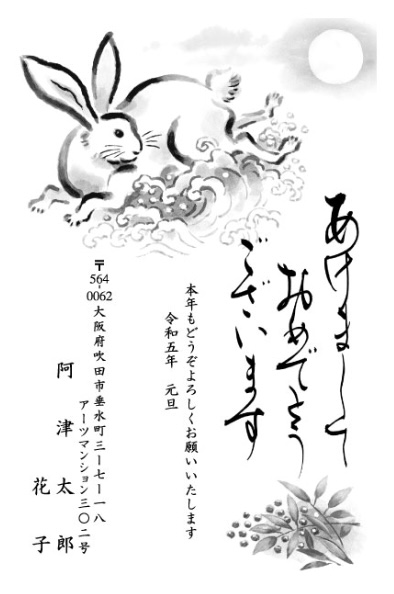 あけまして
おめでとう
ございます
本年もどうぞよろしくお願いいたします
令和五年　元旦
〒564-0062
大阪府吹田市垂水町三ー七ー一八
アーツマンション三〇二号
阿　津　太　郎
花　子